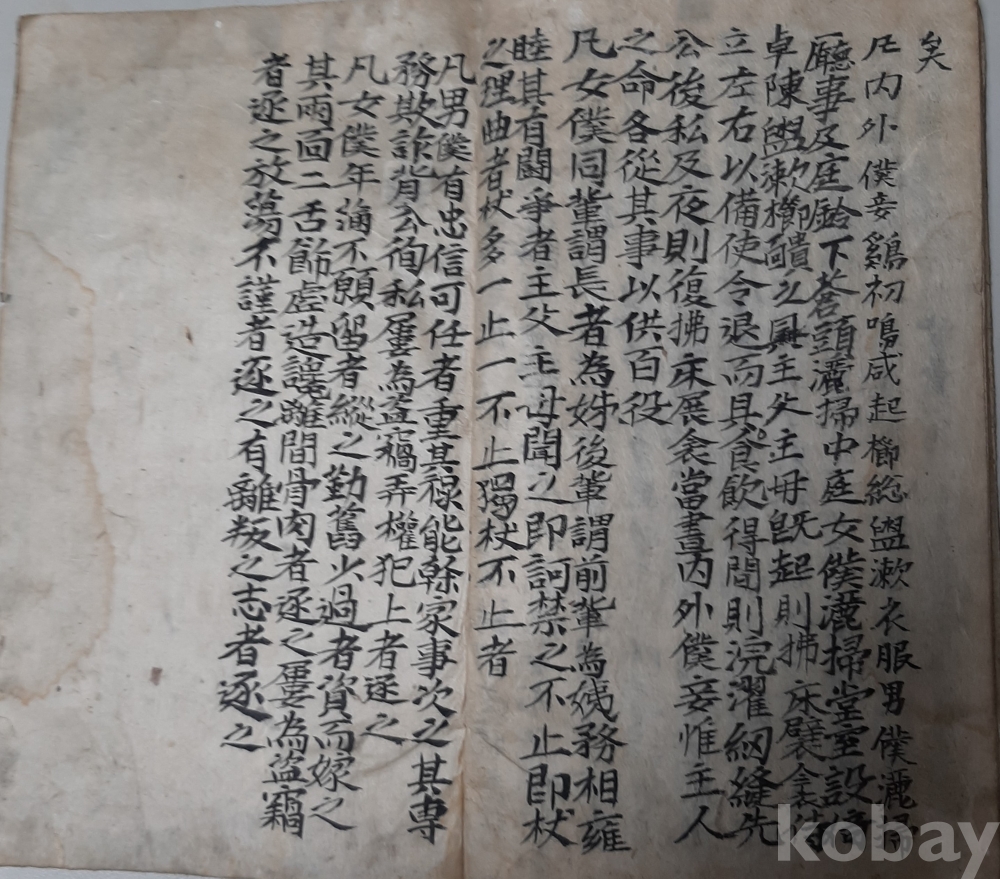 矣
凡內外僕妾鷄初鳴咸起櫛総盥漱衣服男僕灑掃
廳事及庭鈴下蒼頭灑掃中庭女僕灑掃堂室設倚
卓陳盥漱櫛靧之具主父主母旣起則拂床襞衾侍
立左右以備使令退而具食飮得間則浣濯紉縫先
公後私及夜則復拂床展衾當晝內外僕妾惟主人
之命各從其事以供百役
凡女僕同輩謂長者為姊後輩謂前輩為姨務相雍
睦其有鬪爭者主父主母聞之即訶禁之不止即杖
之理曲者杖多一止一不止獨杖不止者
凡男僕有忠信可任者重其祿能幹家事次之其專
務欺詐背公徇私屢為盜竊弄權犯上者逐之
凡女僕年滿不願留者縱之勤舊少過者資而嫁之
其兩面二舌飾虛造讒離間骨肉者逐之屢為盜竊
者逐之放蕩不謹者逐之有離叛之志者逐之
kobay